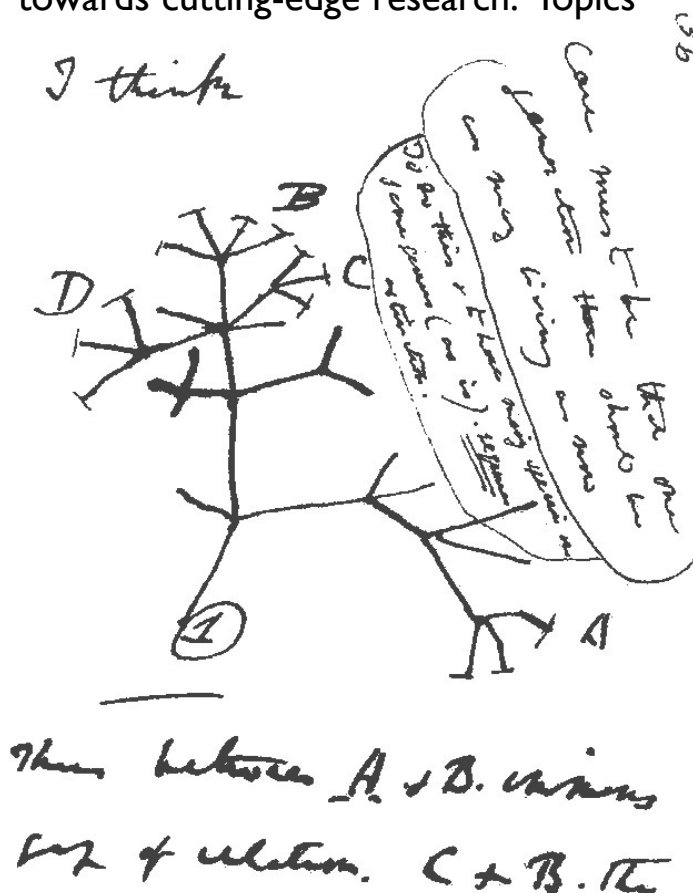 towards cutting-edge research. Topics
36
I think
Case must be that one
generation then should be
as many living as now
To do this & to have many species in
same genus (as is). requires
extinction.
B
C
D
A
1
Thus between A & B. immens
gap of relation. C & B. The